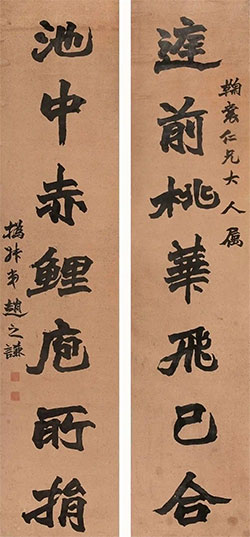 庭前桃華飛已合
鞠裳仁兄大人属
池中赤鯉庖所捐
撝叔弟趙之謙